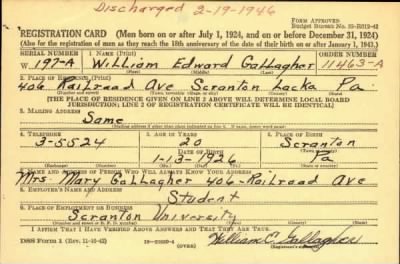 Discharged 2-19-1946
FORM APPROVED
REGISTRATION CARD (Men born on or after July 1, 1924, and on or before December 31, 1924)
(Also for the registration of men as they reach the 18th anniversary of the date of their birth on or after January 1, 1943.)
SERIAL NUMBER 1. NAME (Print) ORDER NUMBER
W 197-A William Edward Gallagher 11463-A
2. PLACE OF RESIDENCE (Print)
406 Railroad Ave Scranton Lacka Pa.
[THE PLACE OF RESIDENCE GIVEN ON LINE 2 ABOVE WILL DETERMINE LOCAL BOARD
JURISDICTION; LINE 2 OF REGISTRATION CERTIFICATE WILL BE IDENTICAL]
3. MAILING ADDRESS
Same
4. TELEPHONE 5. AGE IN YEARS 6. PLACE OF BIRTH
3-5524 20 Scranton
DATE OF BIRTH
1-13-1926 Pa
7. NAME AND ADDRESS OF PERSON WHO WILL ALWAYS KNOW YOUR ADDRESS
Mrs. Mary Gallagher 406-Railroad Ave
8. EMPLOYER'S NAME AND ADDRESS
Student
9. PLACE OF EMPLOYMENT OR BUSINESS
Scranton University
I AFFIRM THAT I HAVE VERIFIED ABOVE ANSWERS AND THAT THEY ARE TRUE.
DSS FORM 1 (Rev. 11-16-42) (OVER) William E. Gallagher